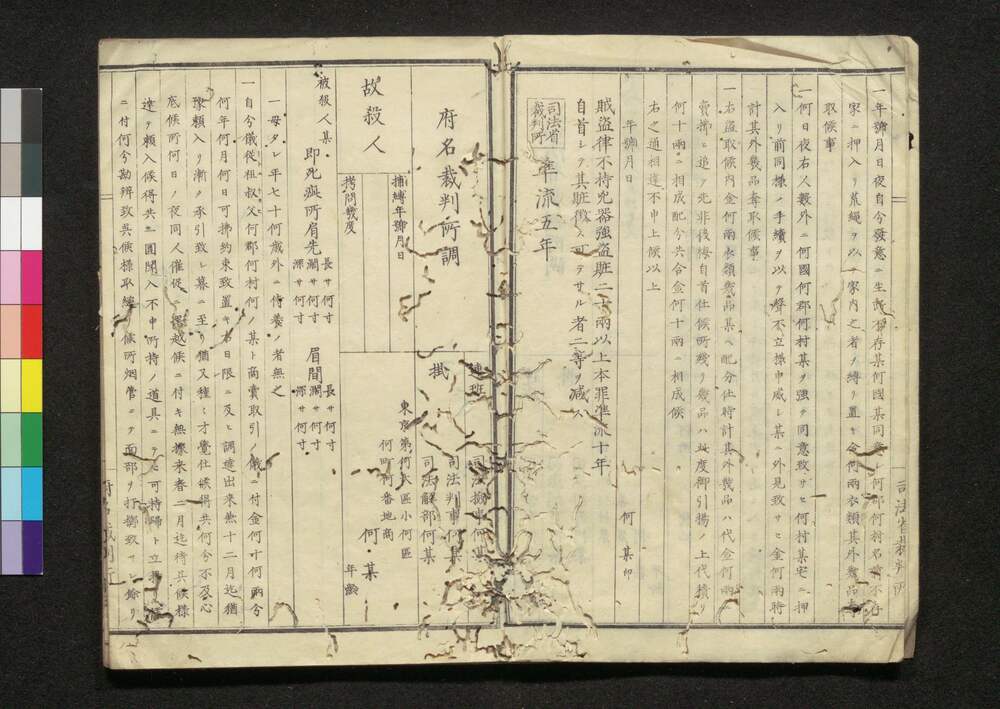 一年號月日夜自今發意ニ生所不存某何國某同意何郡何村名前不存
家ニ押入リ荒縄ヲ以テ家内之者ヲ縛リ置キ金何兩衣類其外幾品
取候事
一何日夜右人數外ニ何國何郡何村某ヲ強テ同意致サセ何村某宅ニ押
入リ前同様ノ手續ヲ以テ聲不立様申威シ某ニ外見致サセ金何兩時
計其外幾品奪取候事
一右盗取候内金何兩衣類幾品某ヘ配分仕時計其外幾品ハ代金何兩ニ
賣拂ヒ追テ先非後悔自首仕候所残リ幾品ハ此度御引揚ノ上代積リ
何十兩ニ相成配分共合金何十兩ニ相成候
右之通相違不申上候以上
年號月日
何某印
賊盗律不持兇器強盗贓二十兩以上本罪准流十年
自首シテ其贓徴ス可ラサル者二等ヲ減ス
司法省
裁判所
准流五年
司法省裁判所
府名裁判所調
連班
司法檢事何某
司法判事何某
司法解部何某
掛
捕縛年號月日
拷問幾度
東京第何大區小何區
何町何番地商
何某
年齢
故殺人
被殺人某
即死疵所眉先
長サ何寸
濶サ何寸
深サ何寸
眉間
長サ何寸
濶サ何寸
深サ何寸
一母タレ年七十何歳外ニ侍養ノ者無之
一自今儀従祖叔父何郡何村何ノ某ト商賣取引ノ儀ニ付金何十何兩今
何年何月何日可拂約束致置キ右日限ニ及ヒ調達出来無十二月迄猶
豫頼入リ漸ク承引致シ暮ニ至リ猶又種々才覺仕候得共何分不及心
底候所何日ノ夜同人催促ニ罷越候ニ付キ無據来春二月迄待呉候様
達テ頼入候得共一圓聞入不申所持ノ道具ニテモ可持帰ト立掛
ニ付何分勘辨致呉候様取縋リ候所烟管ニテ面部ヲ打擲致サレ餘リ